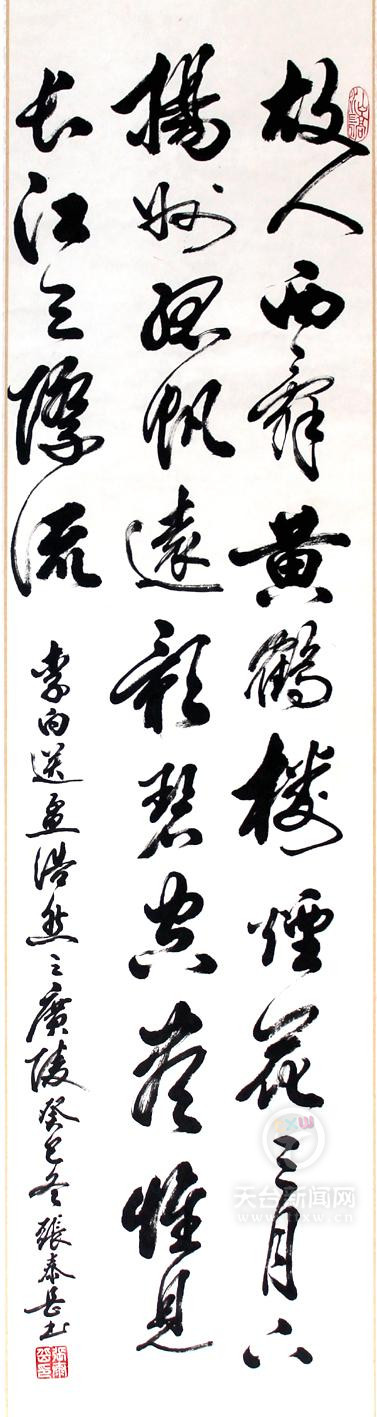 故人西辭黄鶴樓煙花三月下
揚州孤帆遠影碧空盡惟見
長江天際流
李白送孟浩然之廣陵癸巳冬張泰書
天台新闻网